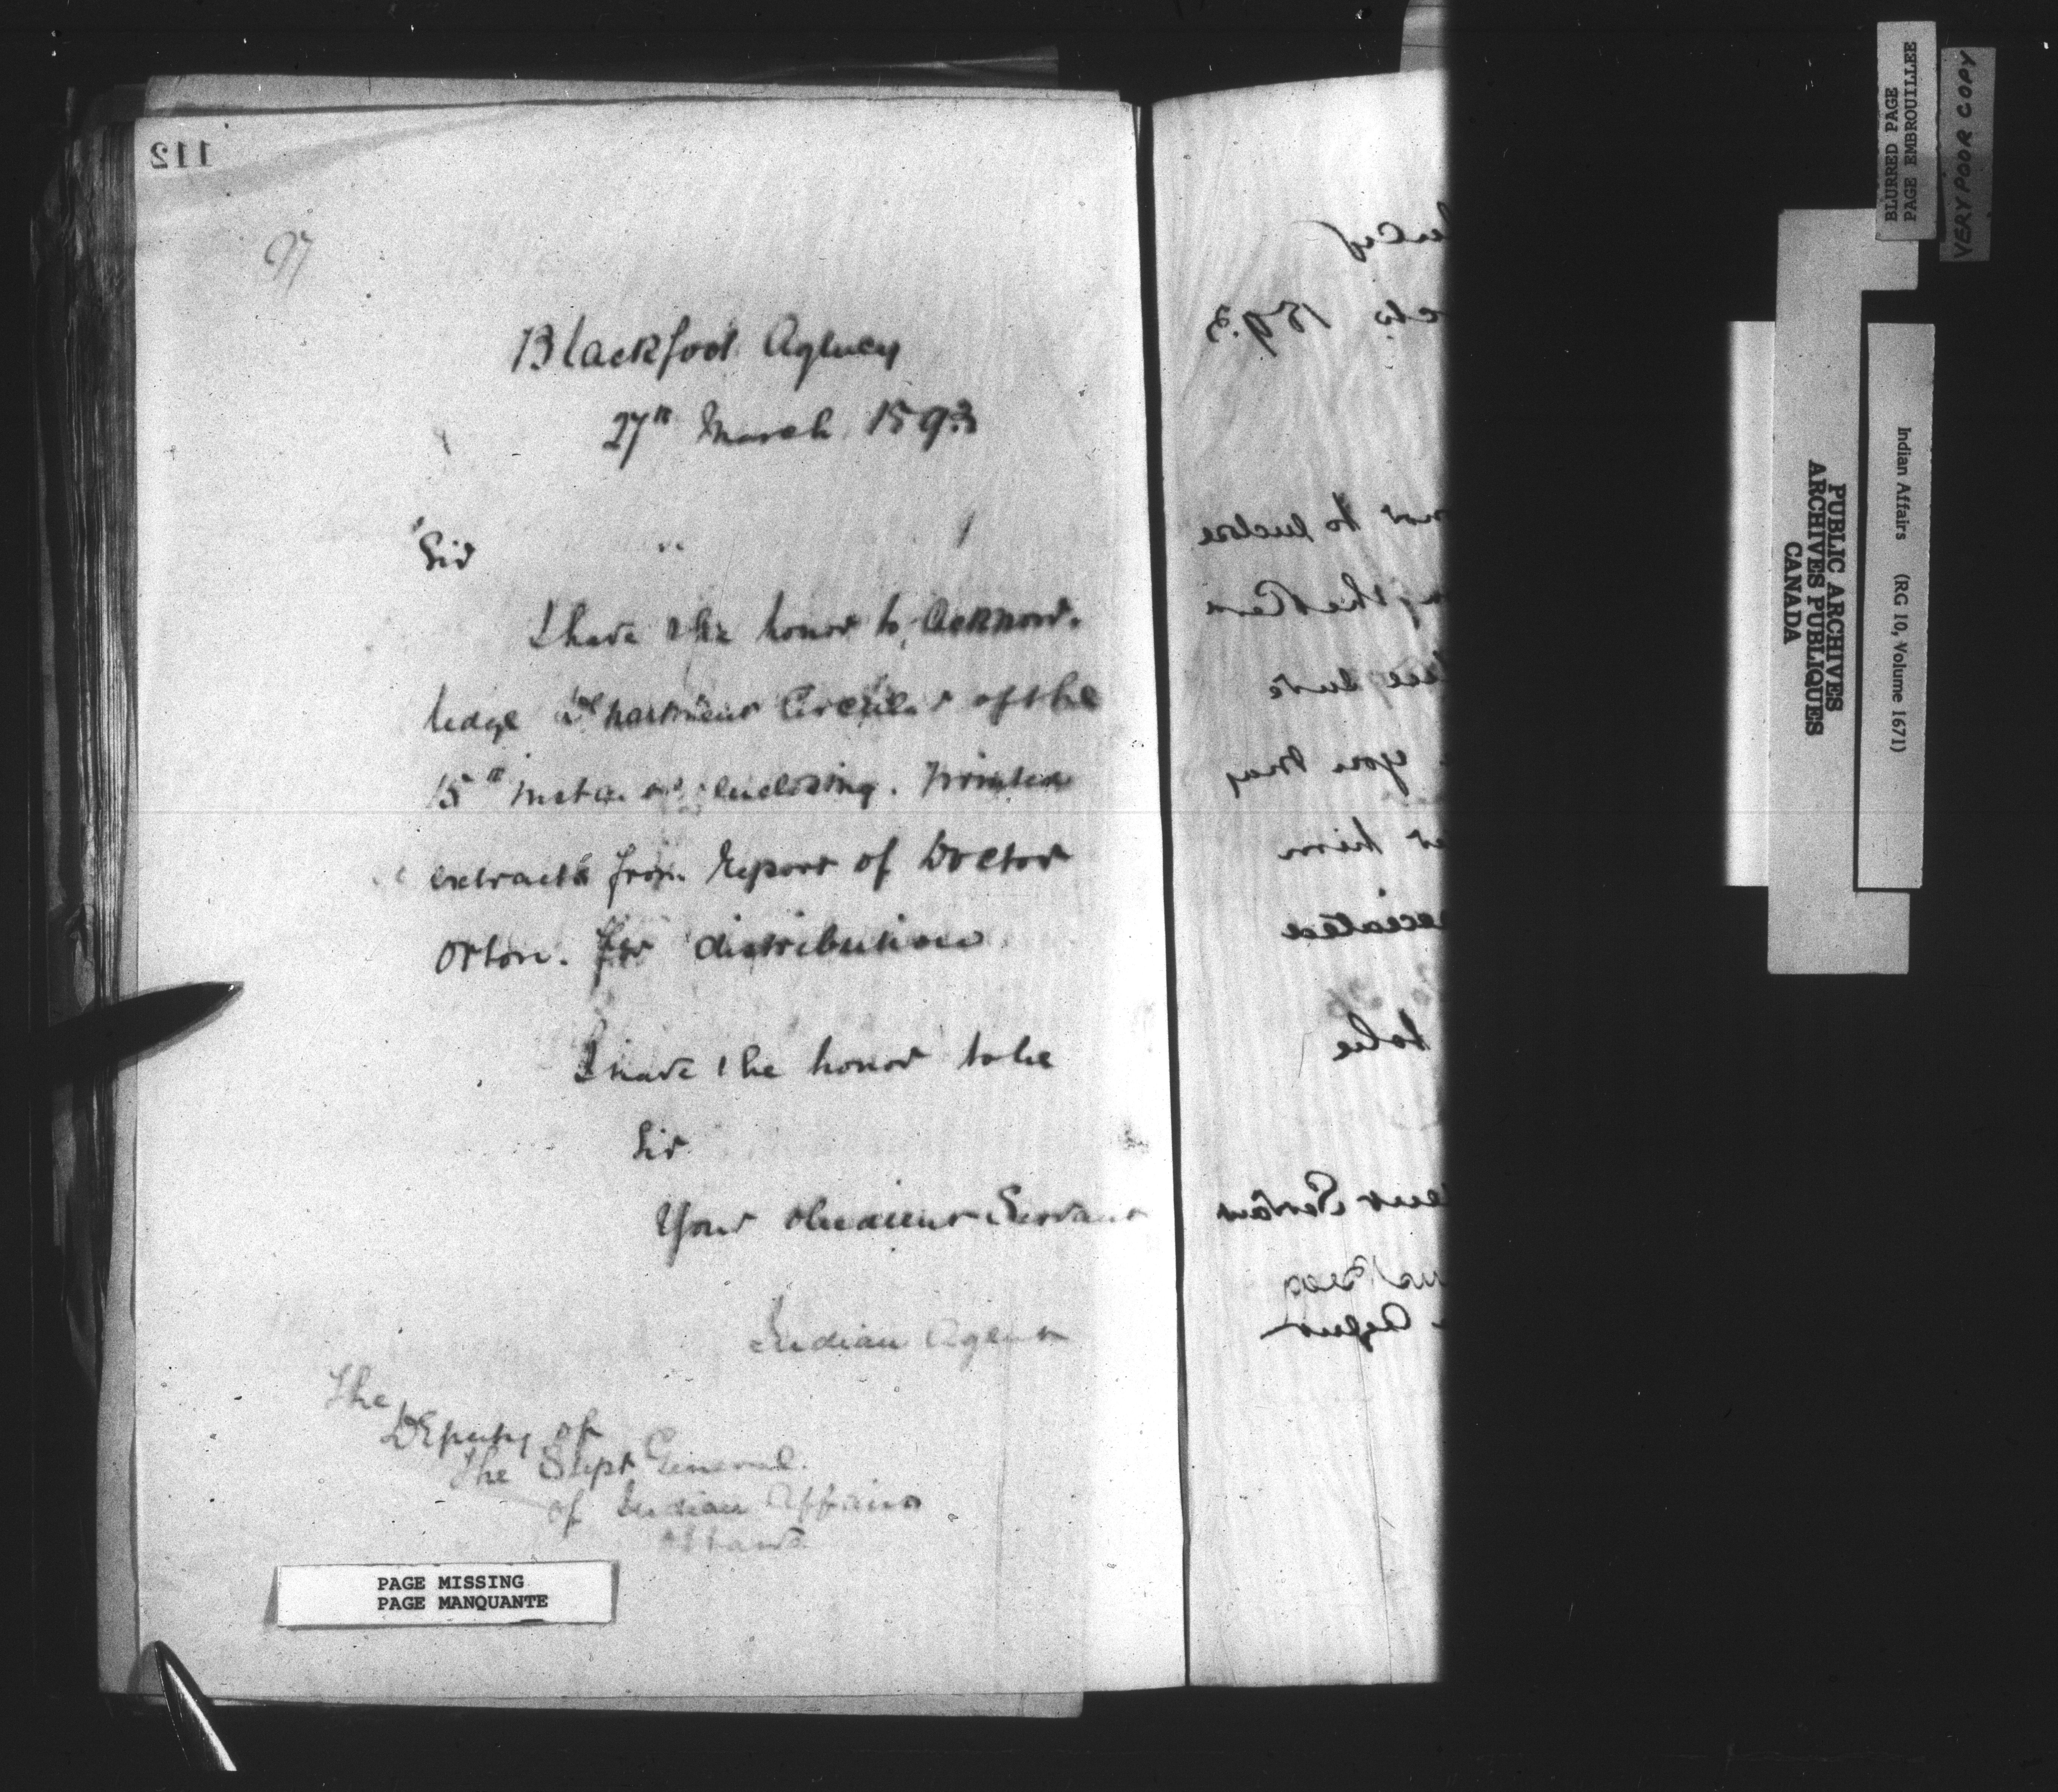 112
97
Blackfoot Agency
27th March 1893
Sir
I have the honor to acknow-
ledge Department Circular of the
15th enclosing printed
extracts from Report of Doctor
Orton. for distribution
I have the honor to be
Sir
Your obedient Servant
Indian Agent
The
Deputy of
the Supt General
of Indian Affairs
Ottawa
PAGE MISSING
PAGE MANQUANTE
1893
to enclose
you may
him
to be
Servant
Agent
BLURRED PAGE
PAGE EMBROUILLEE
VERY POOR COPY
PUBLIC ARCHIVES
ARCHIVES PUBLIQUES
CANADA
Indian Affairs (RG 10, Volume 1671)